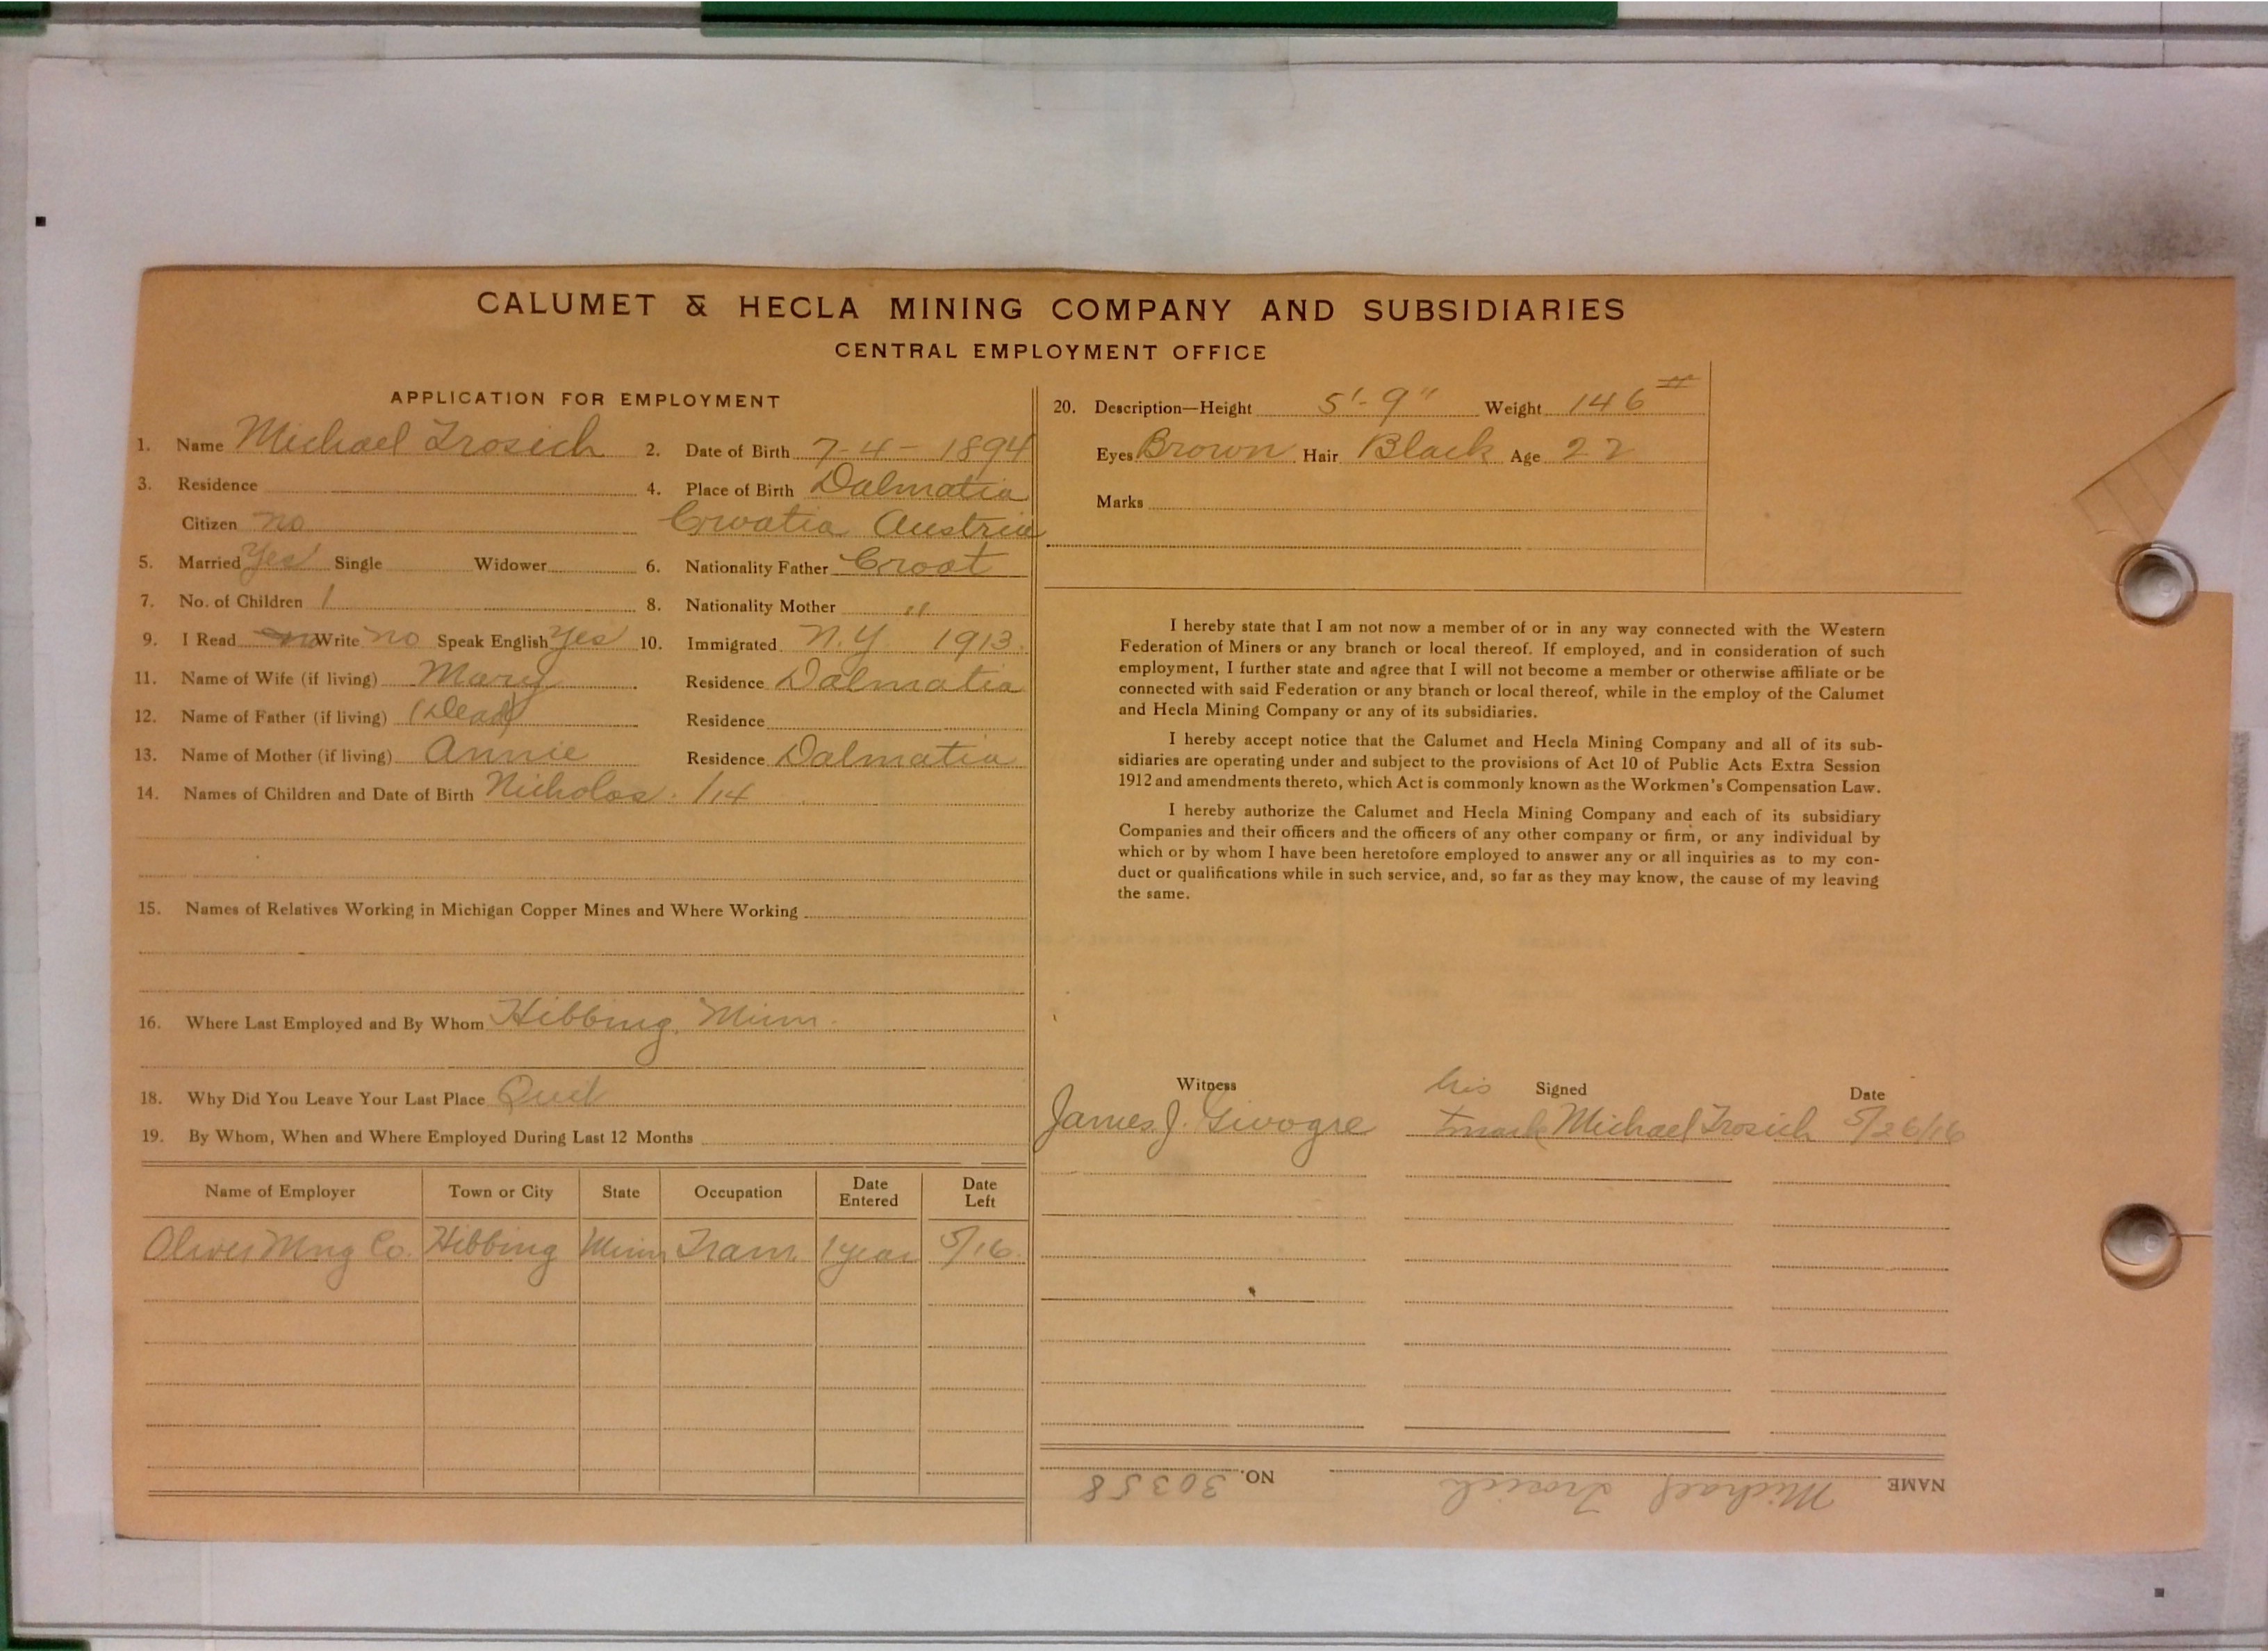 CALUMET & HECLA MINING COMPANY AND SUBSIDIARIES
CENTRAL EMPLOYMENT OFFICE
APPLICATION FOR EMPLOYMENT
1. Name Michael Trosich 2. Date of Birth 7-4-1894
3. Residence 4. Place of Birth Dalmatia
Citizen no Croatia Austria
5. Married Yes Single Widower 6. Nationality Father Croat
7. No. of Children 1 8. Nationality Mother "
9. I Read no Write no Speak English Yes 10. Immigrated N.Y. 1913.
11. Name of Wife (if living) Mary Residence Dalmatia
12. Name of Father (if living) (Dead) Residence
13. Name of Mother (if living) Annie Residence Dalmatia
14. Names of Children and Date of Birth Nicholas. 1/14
15. Names of Relatives Working in Michigan Copper Mines and Where Working
16. Where Last Employed and By Whom Hibbing, Minn.
18. Why Did You Leave Your Last Place Quit
19. By Whom, When and Where Employed During Last 12 Months
Name of Employer Town or City State Occupation Date Entered Date Left
Oliver Mng Co. Hibbing Minn Tram. 1 year 5/16.
20. Description—Height 5'-9" Weight 146#
Eyes Brown Hair Black Age 22
Marks
I hereby state that I am not now a member of or in any way connected with the Western
Federation of Miners or any branch or local thereof. If employed, and in consideration of such
employment, I further state and agree that I will not become a member or otherwise affiliate or be
connected with said Federation or any branch or local thereof, while in the employ of the Calumet
and Hecla Mining Company or any of its subsidiaries.
I hereby accept notice that the Calumet and Hecla Mining Company and all of its sub-
sidiaries are operating under and subject to the provisions of Act 10 of Public Acts Extra Session
1912 and amendments thereto, which Act is commonly known as the Workmen's Compensation Law.
I hereby authorize the Calumet and Hecla Mining Company and each of its subsidiary
Companies and their officers and the officers of any other company or firm, or any individual by
which or by whom I have been heretofore employed to answer any or all inquiries as to my con-
duct or qualifications while in such service, and, so far as they may know, the cause of my leaving
the same.
Witness his Signed Date
James J. Givogre + mark Michael Trosich 5/26/16
NAME Michael Trosich NO. 30358